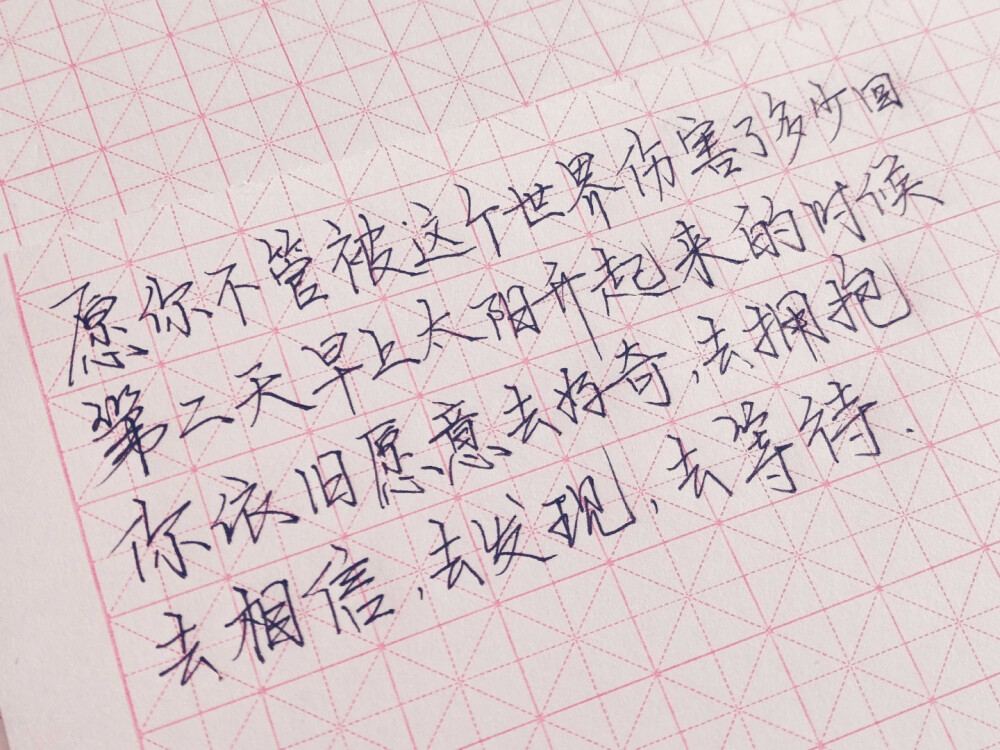 愿你不管被这个世界伤害了多少回
第二天早上太阳升起来的时候
你依旧愿意去好奇,去拥抱
去相信,去发现,去等待.